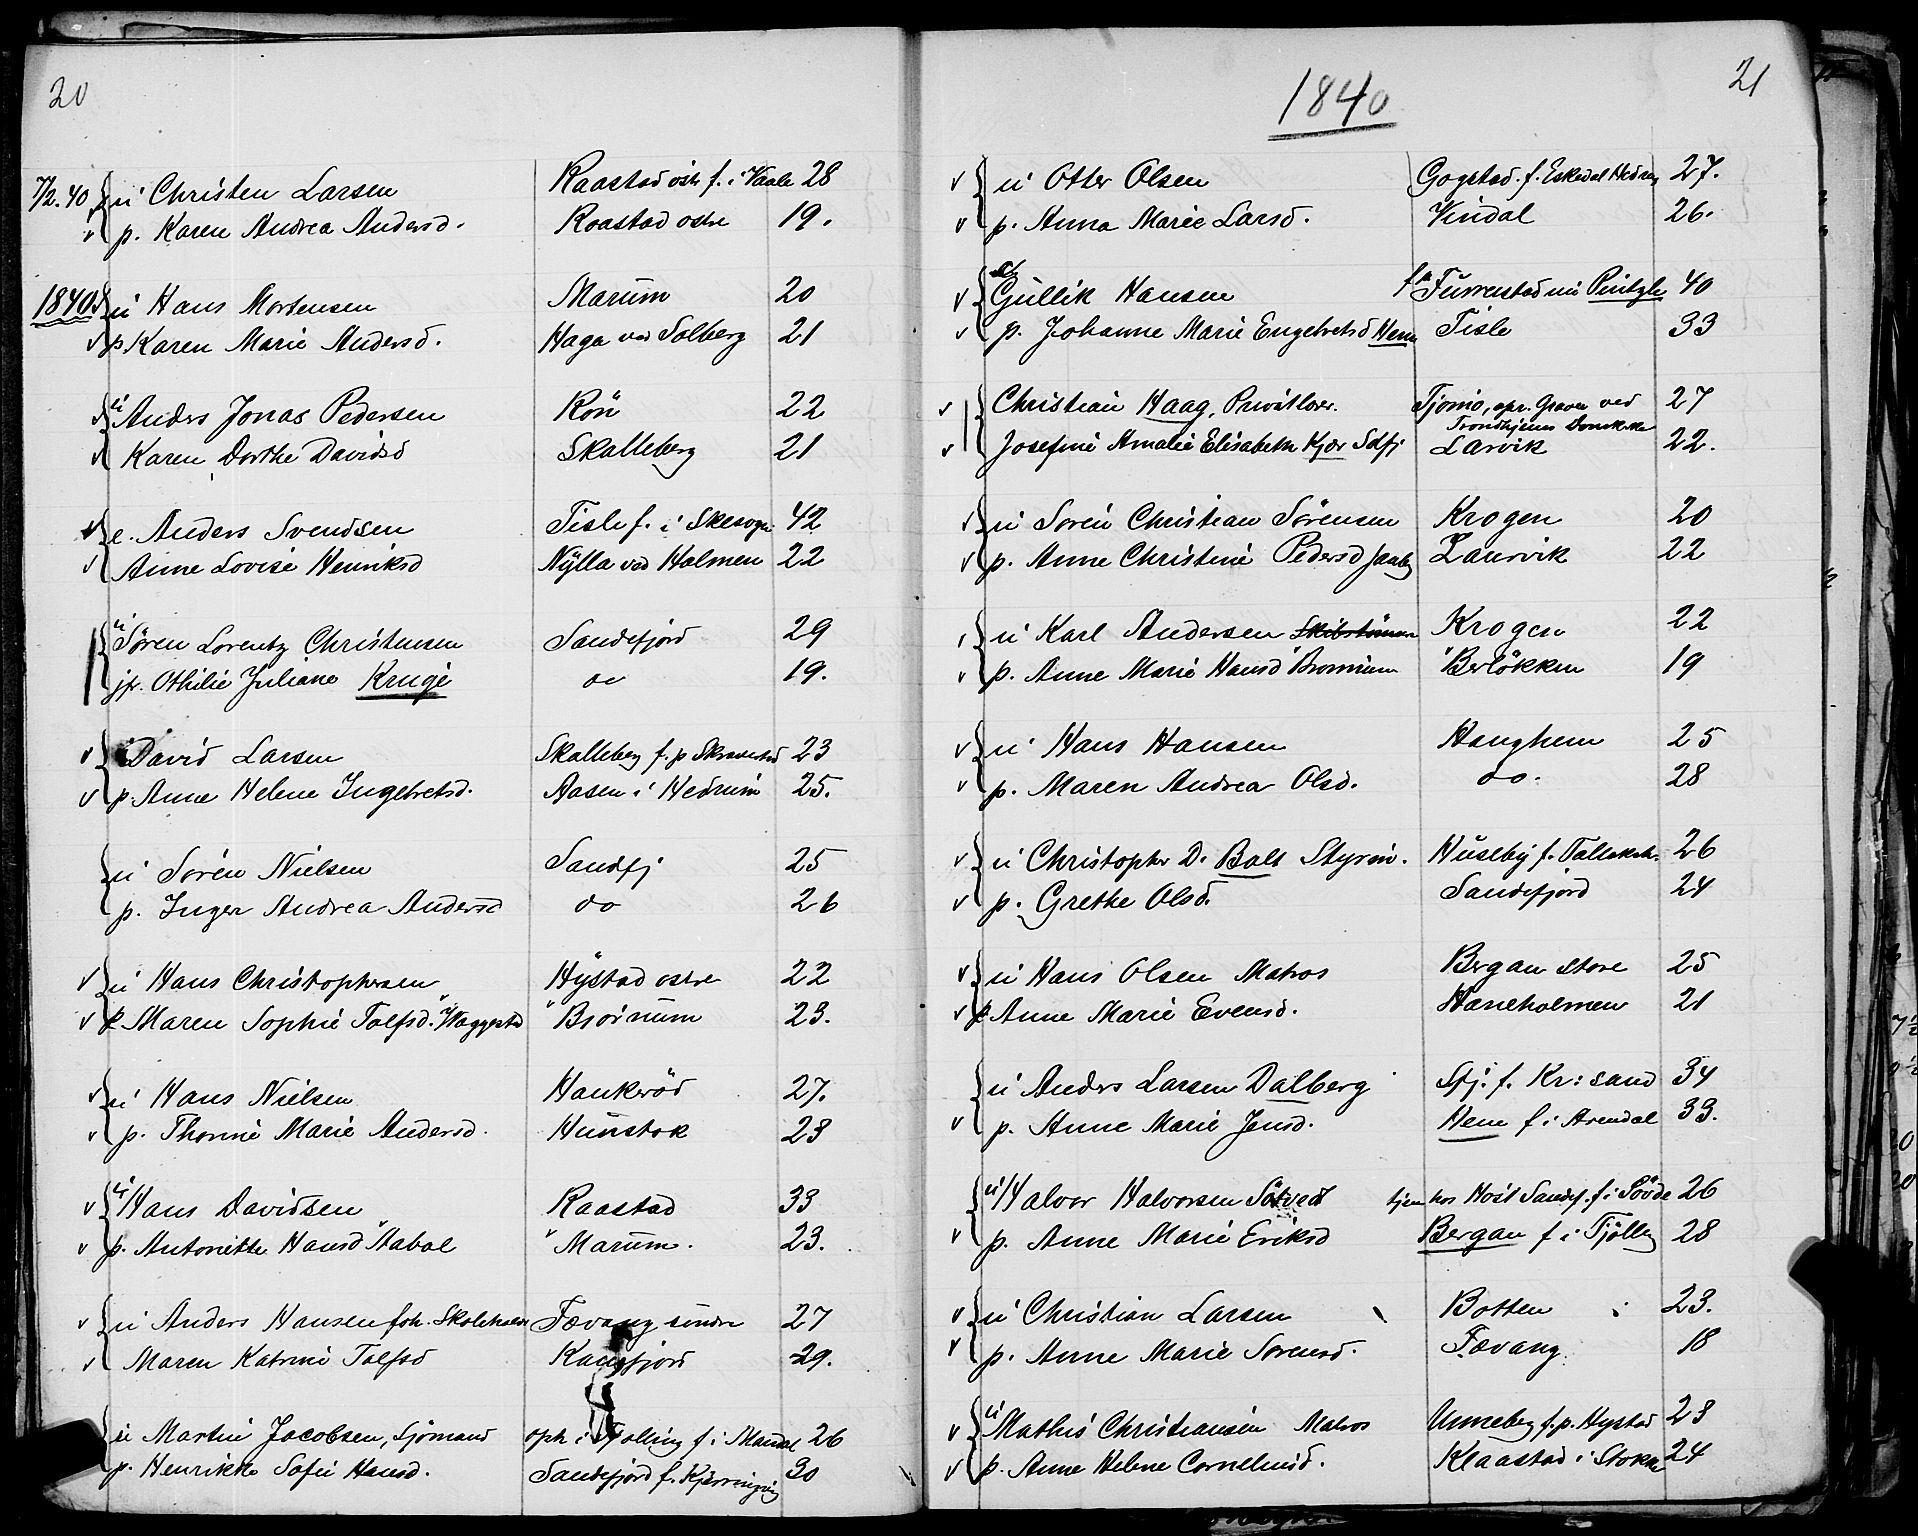 20
7/2.40 ü Christen Larsen Raastad östr f. i Vaale 28
p. Karen Andrea Andersd. Raastad ostre 19.
1840 ü Hans Mortensen Marüm 20
p. Karen Marie Andersd. Haga ved Solberg 21
ü Anders Jonas Pedersen Rön 22
Karen Dorthe Davidsd Skalleberg 21
e. Anders Svendsen Tisle f. i Skesogn 42
Anne Lovise Henriksd Nÿlla ved Holmen 22
ü Sören Lorentz Christensen Sandefjord 29
jfr. Othilie Juliane Kruge do 19.
David Larsen Skalleberg f. p 23
p. Anne Helene Ingebretsd. Aasen i Hedrum 25.
ü Sören Nielsen Sandfj 25
p. Inger Andrea Andersd do 26
ü Hans Christophersen Hÿstad ostre 22
p. Maren Sophie Tolfsd. "Haggestad "Bjornum 23.
ü Hans Nielsen Haukeröd 27.
p. Thorine Marie Andersd. Hunstok 23
ü Hans Davidsen Raastad 33
p. Antonette Hansd "Aabol "Marüm. 23.
ü Anders Hansen foh. Skoleholder Fævang söndre 27
Maren Katrine Tolfsd Kamfjord 29.
ü Martin Jacobsen, Sjömand oph. i Tjölling f. i Mandal 26
p. Henrikke Sofie Hansd. Sandefjord f. 30
1840
21
ü Otter Olsen Gogstad. f. Eskedal Hedrum 27.
p. Anna Marie Larsd. Vindal 26.
Gullik Hansen Furrenstad nü 40
p. Johanne Marie Engebretsd Hem Tisle 33
Christian Haag, Privatlærer. Tjomö, opr. Graver ved 27
Trondhjems Domk.
Josefine Amalie Elisabeth Kjær Sdfj Larvik 22.
ü Soren Christian Sörensen Krogen 20
p. Anne Christine Pedersd Laurvik 22
ü Karl Andersen Skibstömm Krogen 22
p. Anne Marie Hansd "Bronnum "Berlökken 19
ü Hans Hansen Haughem 25
p. Maren Andrea Olsd. do. 28
ü Christopher D. Bolt Styrm. Huseby f. Tallaksh. 26
p. Grethe Olsd. Sandefjord 24
ü Hans Olsen Matros Bergan store 25
p. Anne Marie Evensd. Haneholmen 21
ü Anders Larsen Dalberg Sfj. f. Kr:sand 34
p. Anne Marie Jensd. Hem f i Arendal 33.
ü Halvor Halvorsen Sötvedt tjen hos Höst Sandef. f i Sövde 26
p. Anne Marie Eriksd Bergan f i Tjölling 28
ü Christian Larsen Botten 23.
p. Anne Marie Sorensd. Fævang 18
ü Mathis Christiansen Matros Unneberg f. p. Hystad 23
p. Anne Helene Corneliusd. Klaastad i Stokke 24